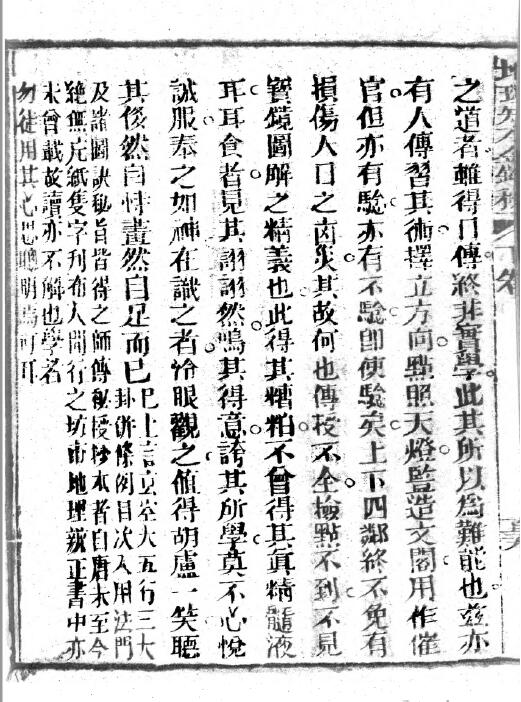 之道者雖得口傳終非實學此其所以爲難能也茲亦
有人傳習其術擇立方向點照天燈監造文閣用作催
官但亦有驗亦有不驗卽使驗矣上下四鄰終不免有
損傷人口之凶災其故何也傳授不全檢點不到不見
寶鏡圖解之精義也此得其糟粕不曾得其眞精髓液
耳耳食者見其詡詡然鳴其得意誇其所學莫不心悅
誠服奉之如神在識之者冷眼觀之値得胡盧一笑聽
其後然自恃畫然自足而已
已上言玄空大五行三大
卦倂條例目次入用法門
及諸圖訣秘旨皆得之師傳秘授抄本者自唐末至今
絶無片紙隻字刋布人間行之坊市地理辨正書中亦
未曾載故讀亦不解也學者
勿徒用其心思聰明焉可耳